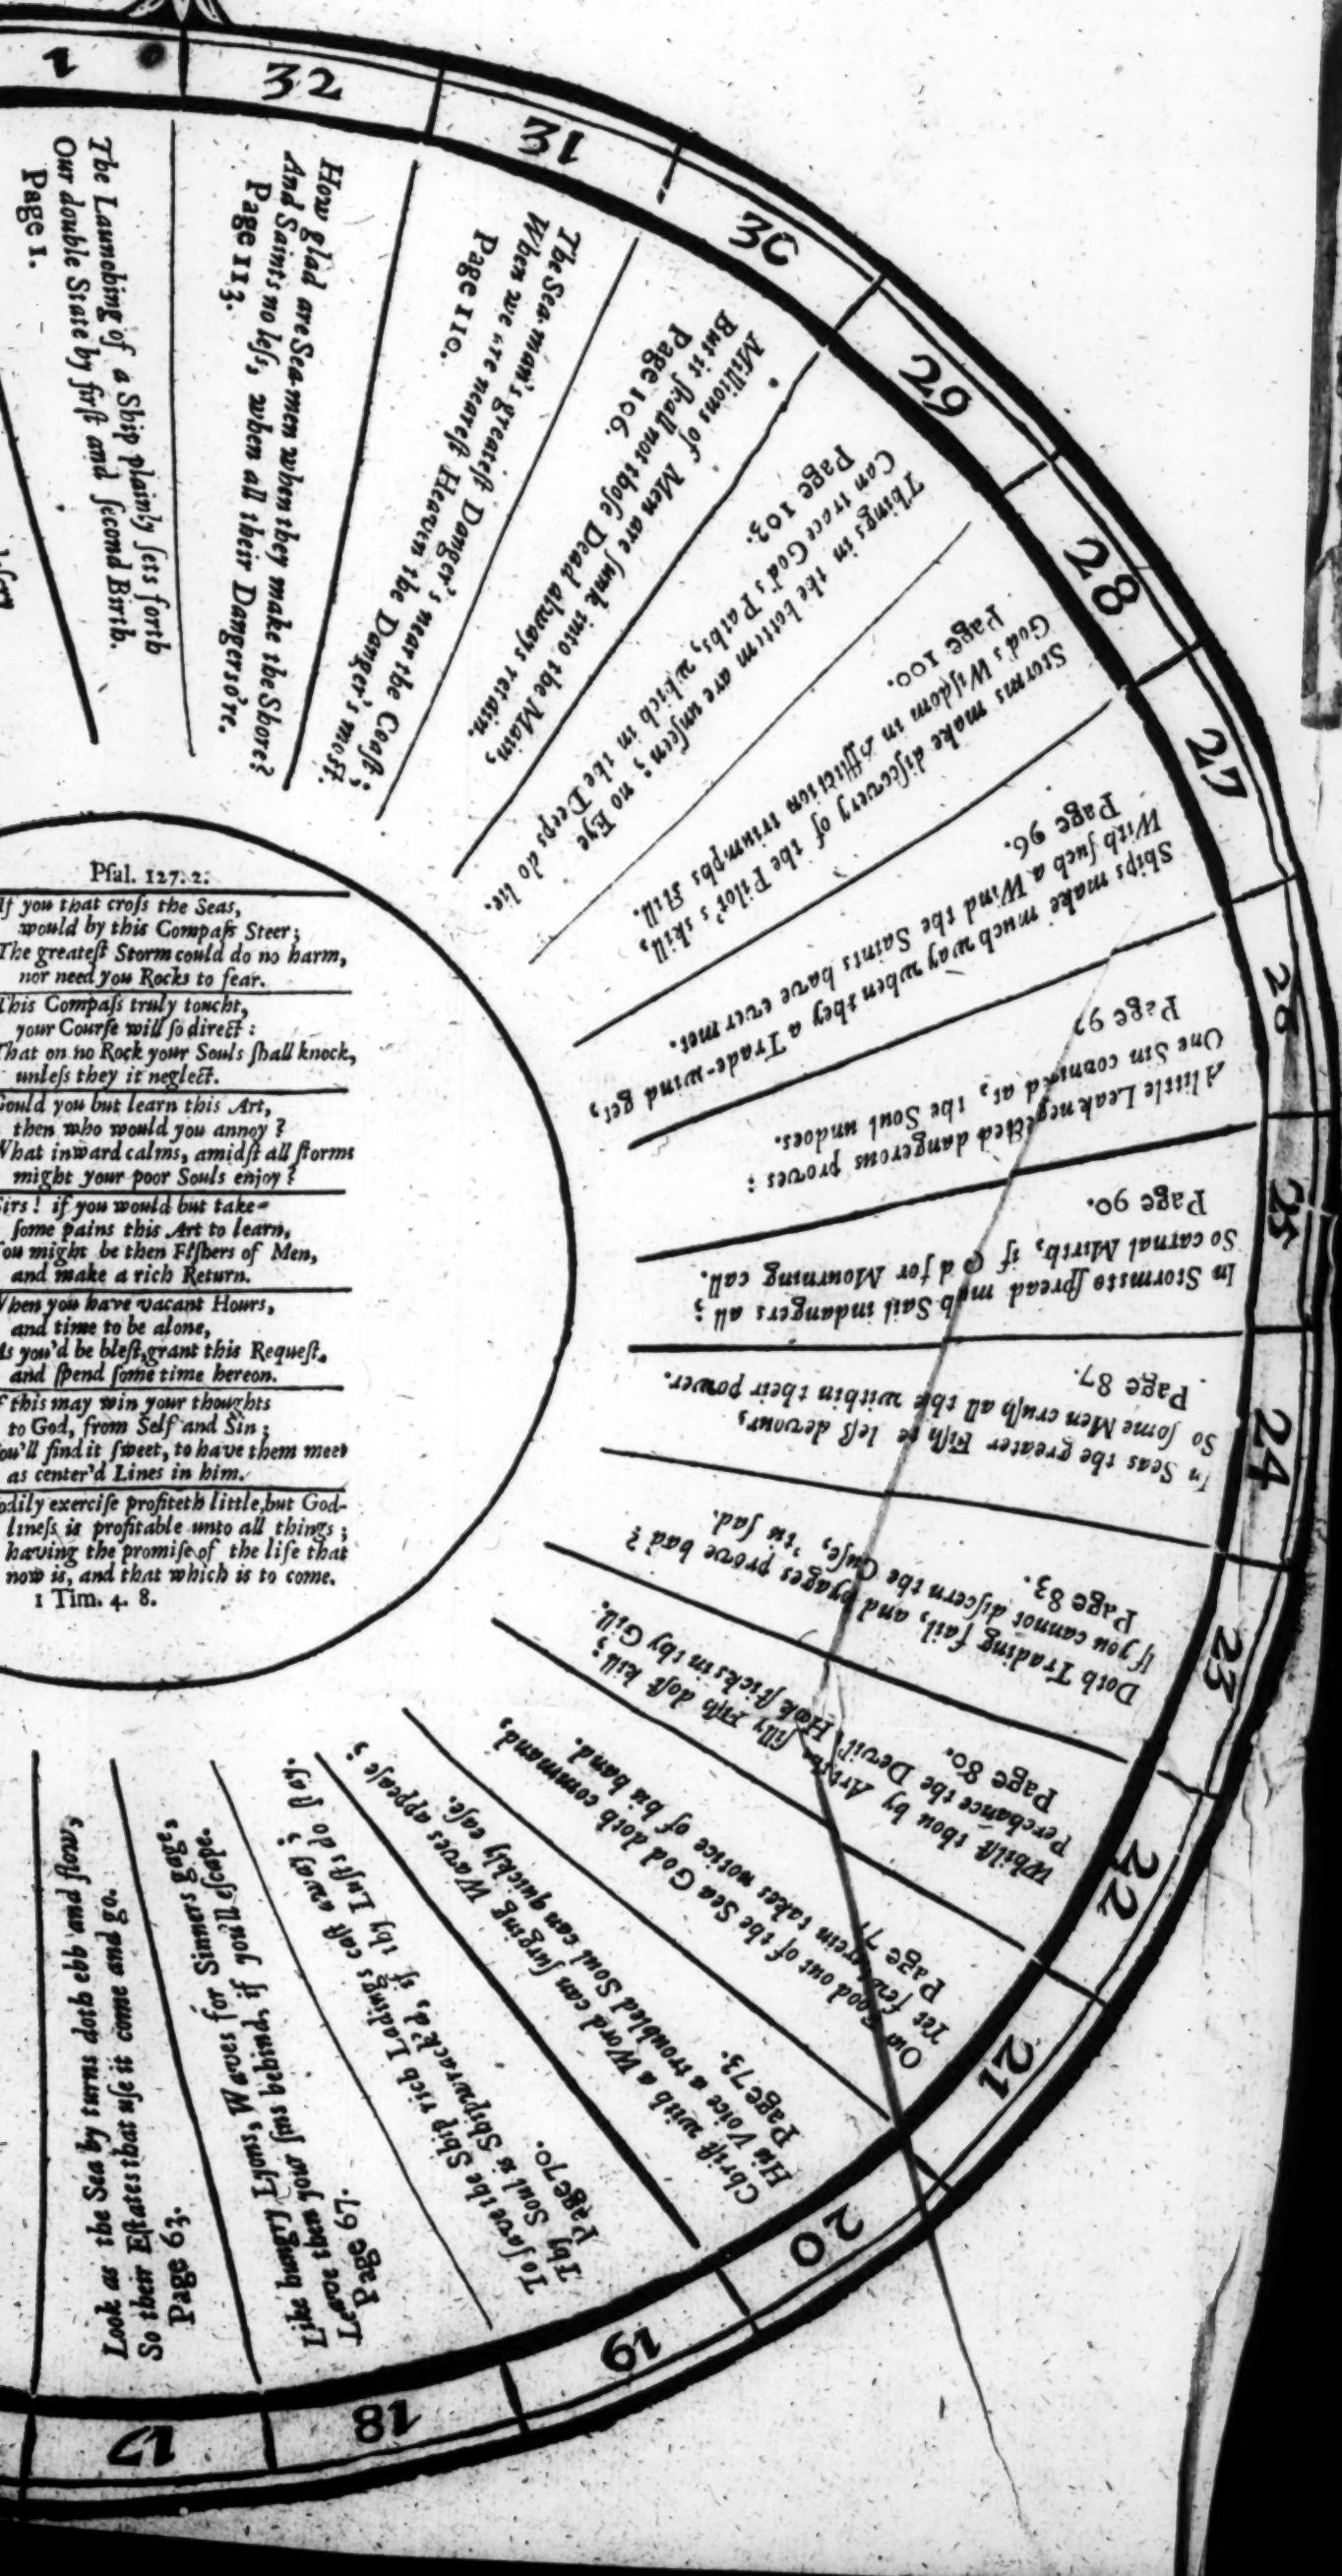 1
The Launching of a Ship plainly ſets forth
Our double State by firſt and ſecond Birth.
Page 1.
32
How glad are Sea-men when they make the Shore?
And Saints no leſs, when all their Danger's o're.
Page 113.
31
The Sea-man's greateſt Danger's near the Coaſt;
When we are neareſt Heaven the Danger's moſt.
Page 110.
30
Millions of Men are ſunk into the Main,
But it ſhall not thoſe Dead always retain.
Page 106.
29
Things in the bottom are unſeen; no Eye
Can trace God's Paths, which in the Deeps do lie.
Page 103.
28
Storms make diſcovery of the Pilot's skill,
God's Wiſdom in Affliction triumphs ſtill.
Page 100.
27
Ships make much way when they a Trade-wind get,
With ſuch a Wind the Saints have ever met.
Page 96.
26
A little Leak neglected dangerous proves:
One Sin connived at, the Soul undoes.
Page 93
25
In Storms to ſpread much Sail indangers all;
So carnal Mirth, if God for Mourning call.
Page 90.
24
In Seas the greater Fiſh the leſs devour,
So ſome Men cruſh all thoſe within their power.
Page 87.
23
Doth Trading fail, and Voyages prove bad?
If you cannot diſcern the Cauſe, 'tis ſad.
Page 83.
22
Whilſt thou by Art the ſilly Fiſh doſt kill;
Perchance the Devil's Hook ſticks in thy Gill.
Page 80.
21
Our Food out of the Sea God doth command,
Yet few therein takes notice of his hand.
Page 77
20
Chriſt with a Word can ſurging Waves appeaſe;
His Voice a troubled Soul can quickly eaſe.
Page 73.
19
To ſave the Ship rich Ladings caſt away;
Thy Soul is Shipwrack'd, if thy Luſts do ſtay.
Page 70.
18
Like hungry Lyons, Waves for Sinners gape,
Leave then your ſins behind, if you'll eſcape.
Page 67.
17
Look as the Sea by turns doth ebb and flow,
So their Eſtates that uſe it come and go.
Page 63.
Pſal. 127. 2:
If you that croſs the Seas,
would by this Compaſs Steer;
The greateſt Storm could do no harm,
nor need you Rocks to fear.
This Compaſs truly toucht,
your Courſe will ſo direct:
That on no Rock your Souls ſhall knock,
unleſs they it neglect.
Could you but learn this Art,
then who would you annoy?
What inward calms, amidſt all ſtorms
might your poor Souls enjoy?
Sirs! if you would but take
ſome pains this Art to learn,
You might be then Fiſhers of Men,
and make a rich Return.
When you have vacant Hours,
and time to be alone,
As you'd be bleſt, grant this Requeſt,
and ſpend ſome time hereon.
If this may win your thoughts
to God, from Self and Sin;
You'll find it ſweet, to have them meet
as center'd Lines in him.
Bodily exerciſe profiteth little, but God-
lineſs is profitable unto all things;
having the promiſe of the life that
now is, and that which is to come.
1 Tim. 4. 8.